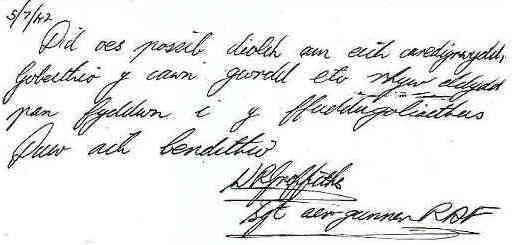 5/7/42
Did oes possib diolch am eich caredigrwydd,
Gobeithio y cawn gwrdd eto rhyw ddydd
pan fyddwn i y
Duw aich bendithio
DRGriffiths
Sgt air gunner RAF